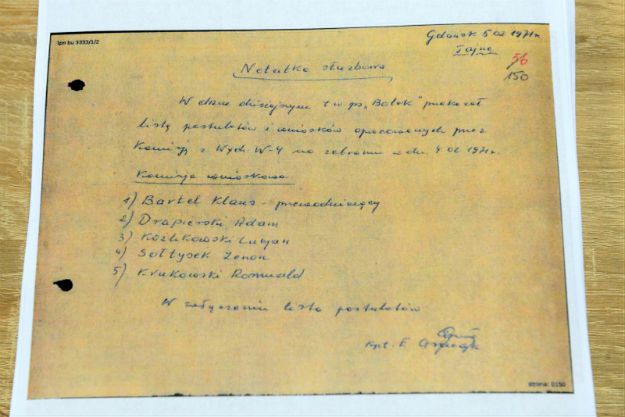 ipn bu 3333/1/2
Gdańsk 5 02 1971r.
Tajne
56
150
Notatka służbowa
W dniu dzisiejszym t.w. ps. „Bolek" przekazał
listę postulatów i wniosków opracowanych przez
Komisję z Wydz. W-4 na zebraniu w dn. 4 02 1971r.
Komisja wnioskowa
1) Bartel Klaus - przewodniczący
2) Drapierski Adam
3) Kozlikowski Lucjan
4) Sołtysek Zenon
5) Krukowski Romuald
W załączeniu lista postulatów
Kpt. E.
strona: 0150